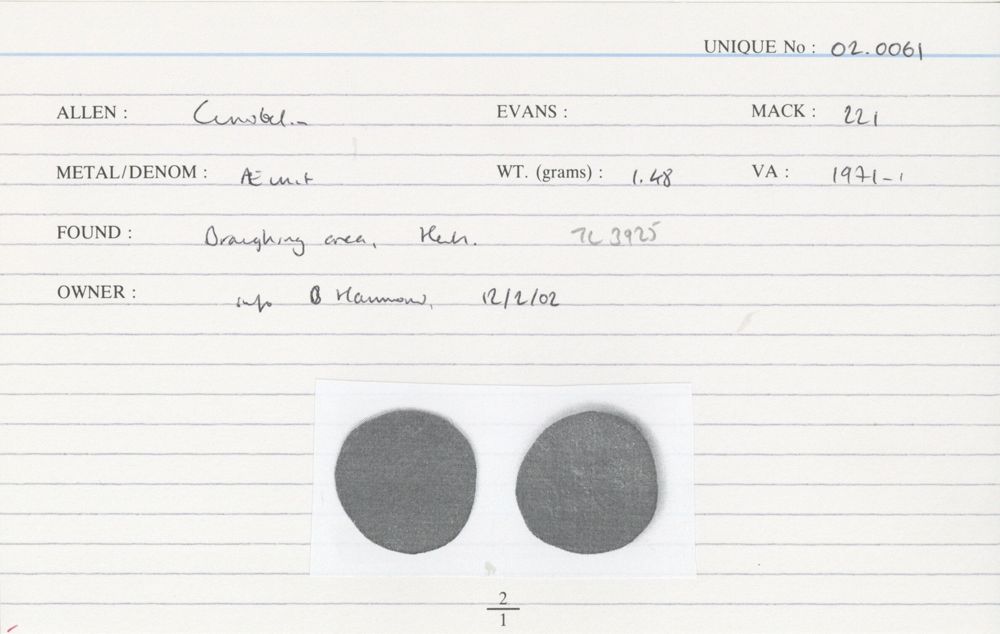 UNIQUE No : 02.0061
ALLEN : Cunobelin EVANS : MACK : 221
METAL/DENOM : Æ unit WT. (grams) : 1.48 VA : 1971-1
FOUND : Braughing area, Herts. TL 3925
OWNER : info B Hammond, 12/2/02
2
1